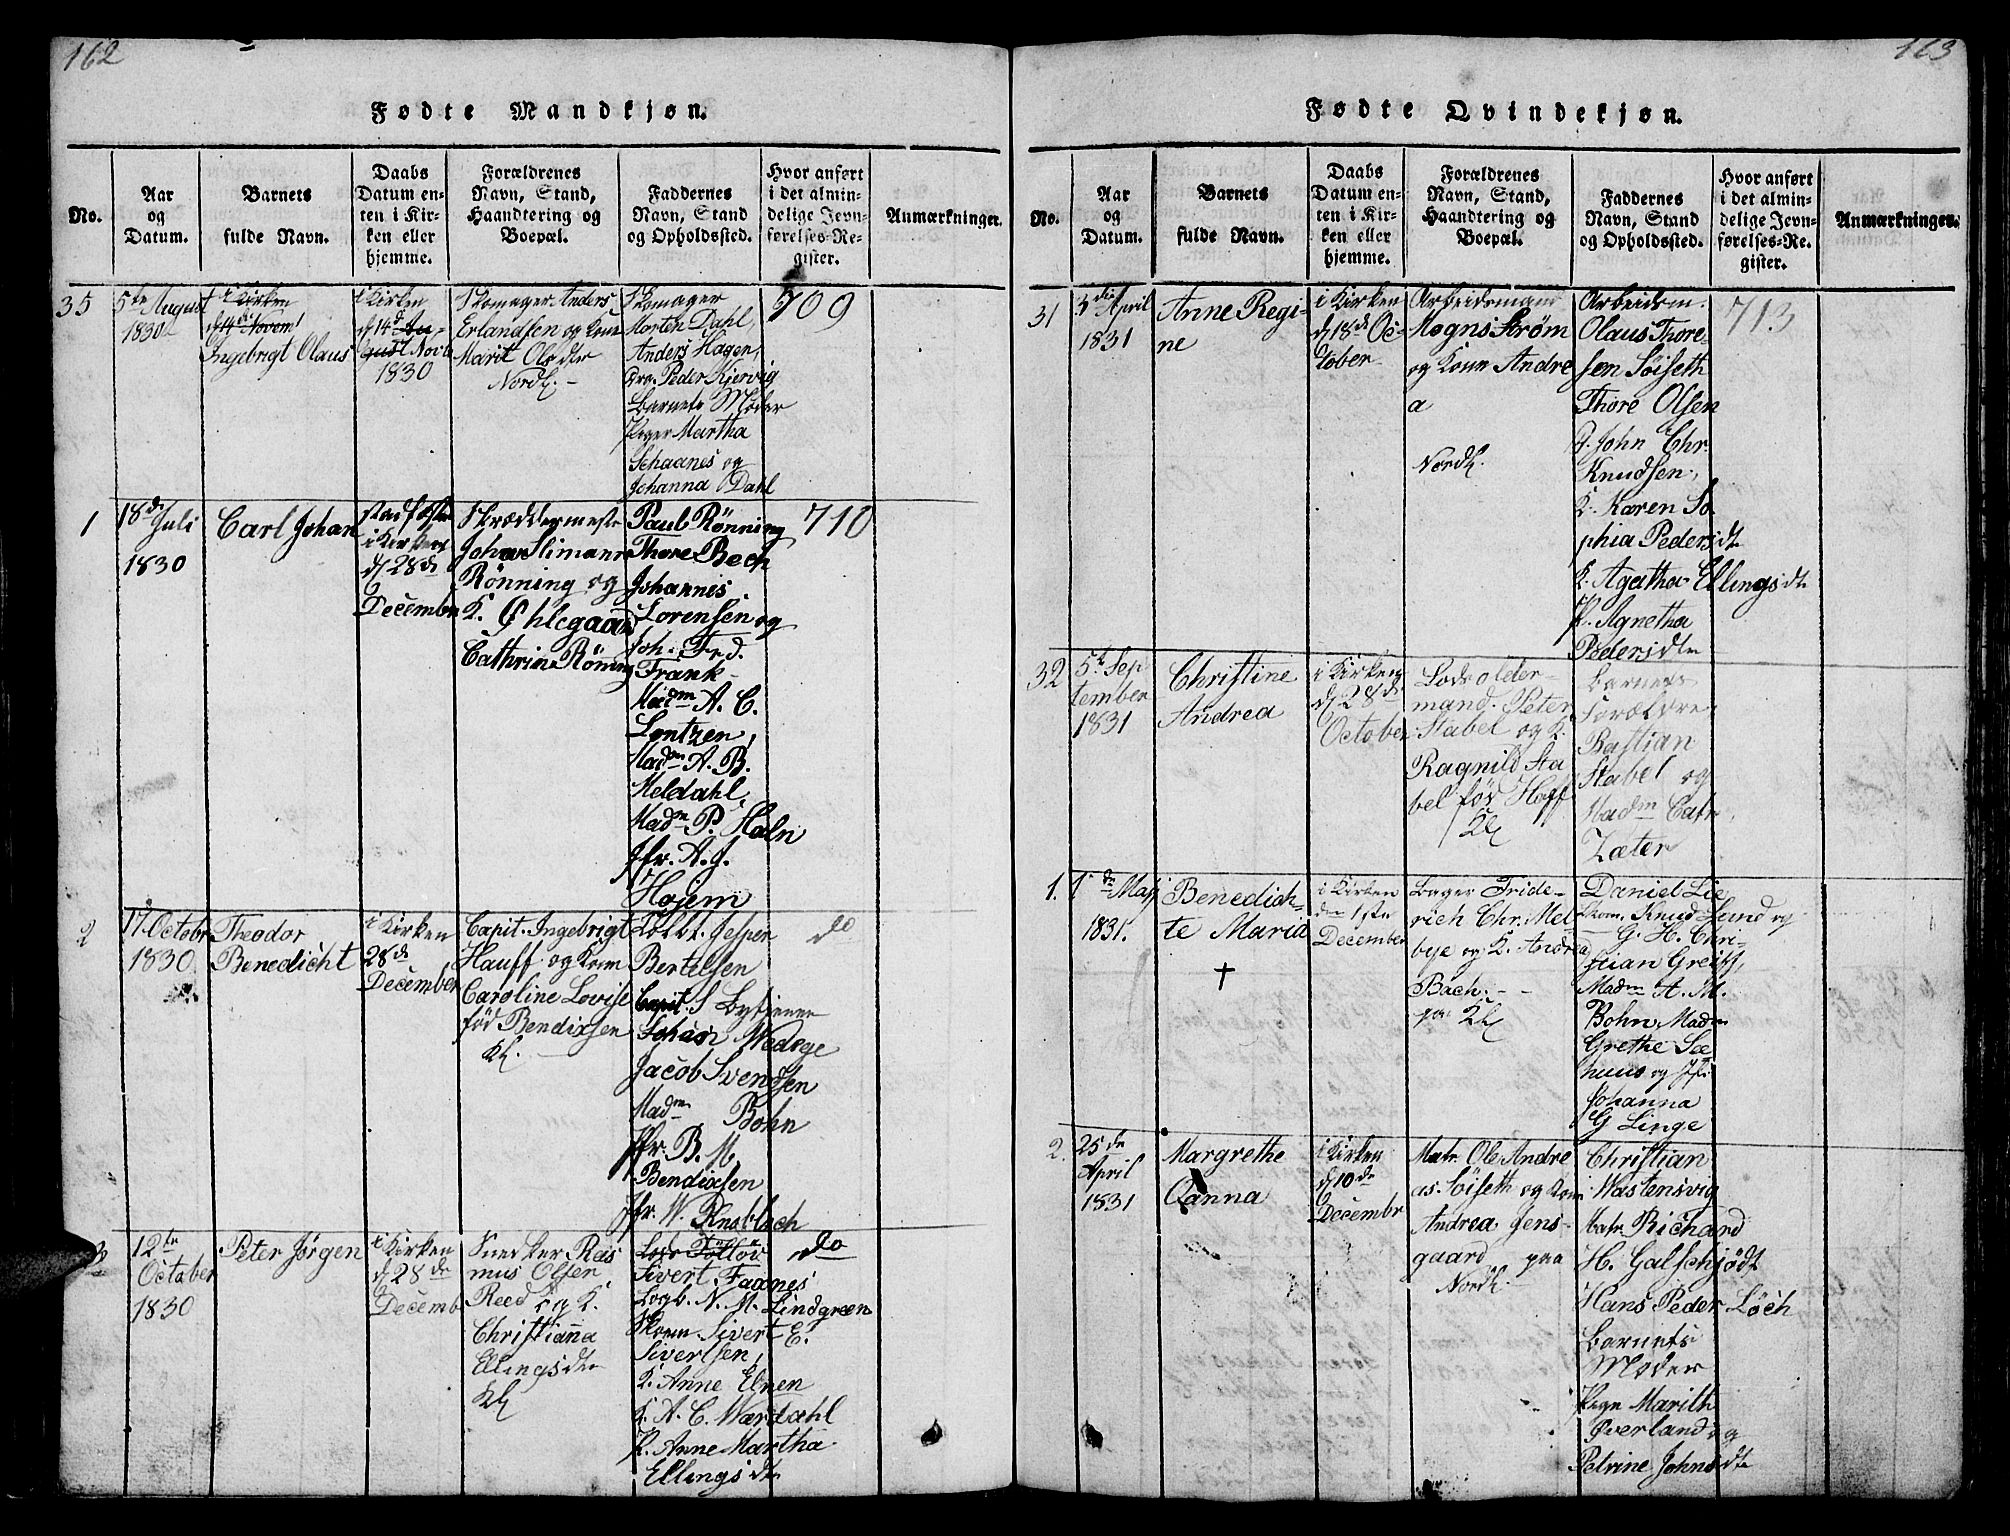 162
Fødte Mandkjøn.
No.
Aar
og
Datum.
Barnets
fulde Navn.
Daabs
Datum en-
ten i Kir-
ken eller
hjemme.
Forældrenes
Navn, Stand,
Haandtering og
Boepæl.
Faddernes
Navn, Stand
og Opholdssted.
Hvor anført
i det almin-
delige Jevn-
førelses-Re-
gister.
Anmærkninger.
35
5te August
1830
i Kirken
d 14de Novemb
Ingebrigt Olaus
i Kirken
d 14d Au-
gust Novb
1830
Skomager Anders
Erlandsen og Kone
Marit Olsdtr
Nordl. -
Skomager
Morten Dahl,
Anders Hagen,
Peder Kjervig
Barnets Moder
Piger Martha
Schaanes og
Johanna Dahl
709
1
18de Juli
1830
Carl Johan
i Kirken
d 28de
December
Skræddermester
Johan Slimann
Rönning og
K. Øhlegaard
Cathrine Rönning
Paul Rönning
Thore Bech
Johannes
Lorensen og
Joh. Fred.
Frank
Madm A. C.
Lontzen,
Madm A. B.
Meldahl,
Madm P. Haln
Jfr. A. J.
Hojem
710
2
17 Octobr
1830
Theodor
Benedicht
i Kirken
28de
December
Capit. Ingebrigt
Hauff og Kone
Caroline Lovise
fød Bendixsen
Kl.
Jesper
Bertelsen
Capit. S Bysiener
Johan Wedege
Jacob Svendsen
Madm Bohn
Jfr. B. M.
Bendixsen
Jfr. W. Knoblach
do
3
12te
October
1830
Peter Jørgen
i Kirken
d 28de
Decemb
Snedker Ras
mus Olsen
Reed og K.
Christianna
Ellingsdtr
Kl
Lods Tölløv
Sivert Faanes
Logb. N. M. Lindgreen
Skom Sivert E.
Sivertsen,
K. Anne Elnen
K. A. C. Wardahl
P. Anne Martha
Ellingsdtr
do
163
Fødte Qvindekjøn.
No.
Aar
og
Datum.
Barnets
fulde Navn.
Daabs
Datum en-
ten i Kir-
ken eller
hjemme.
Forældrenes
Navn, Stand,
Haandtering og
Boepæl.
Faddernes
Navn, Stand
og Opholdssted.
Hvor anført
i det almin-
delige Jevn-
førelses-Re-
gister.
Anmærkninger.
31
April
1831
Anne Regi-
ne
i Kirken
d 18de Oc-
tober
Arbeidsmand
Mogns Strøm
og Kone Andre
a
Nordl.
Arbeidsm.
Olaus Thore-
sen Söiseth
Thore Olsen
John Chr.
Knudsen,
K. Karen So
phia Pedersdtr
K. Agatha Ellingsdtr
P. Agnetha
Pedersdtr
713
32
5te Sep
tember
1831
Christine
Andrea
i Kirken
d 28de
October
Lodsolder-
mand Peter
Stabel og K.
Ragnild Sta
bel fød Hoff
Kl
Barnets
Forældre
Bastian
Stabel og
Madm Catr.
Zæter
1.
1de Maij
1831.
Benedich-
te Maria
†
i Kirken
den 1ste
December
Bager Fride-
rich Chr. Mel-
bye og K. Andrea
Bach. - -
paa Kl
Daniel Lie
Skom. Knud Lund og
G. H. Chri-
stian Greiff,
Madm A. M.
Bohn Madm
Grethe See
huus og Jfr
Johanna
G Linge
2.
25de
April
1831
Margrethe
Qanna
i Kirken
d 10de
Decembr
Matr. Ole Andre
as Söiseth og Kone
Andrea Jens-
gaard paa
Nordl.
Christian
Wastensvig
Matr. Richard
H. Galschjödt
Hans Peder Löch
Barnets
Moder
Pigen Marith
Øverland og
Petrine Johnsdtr